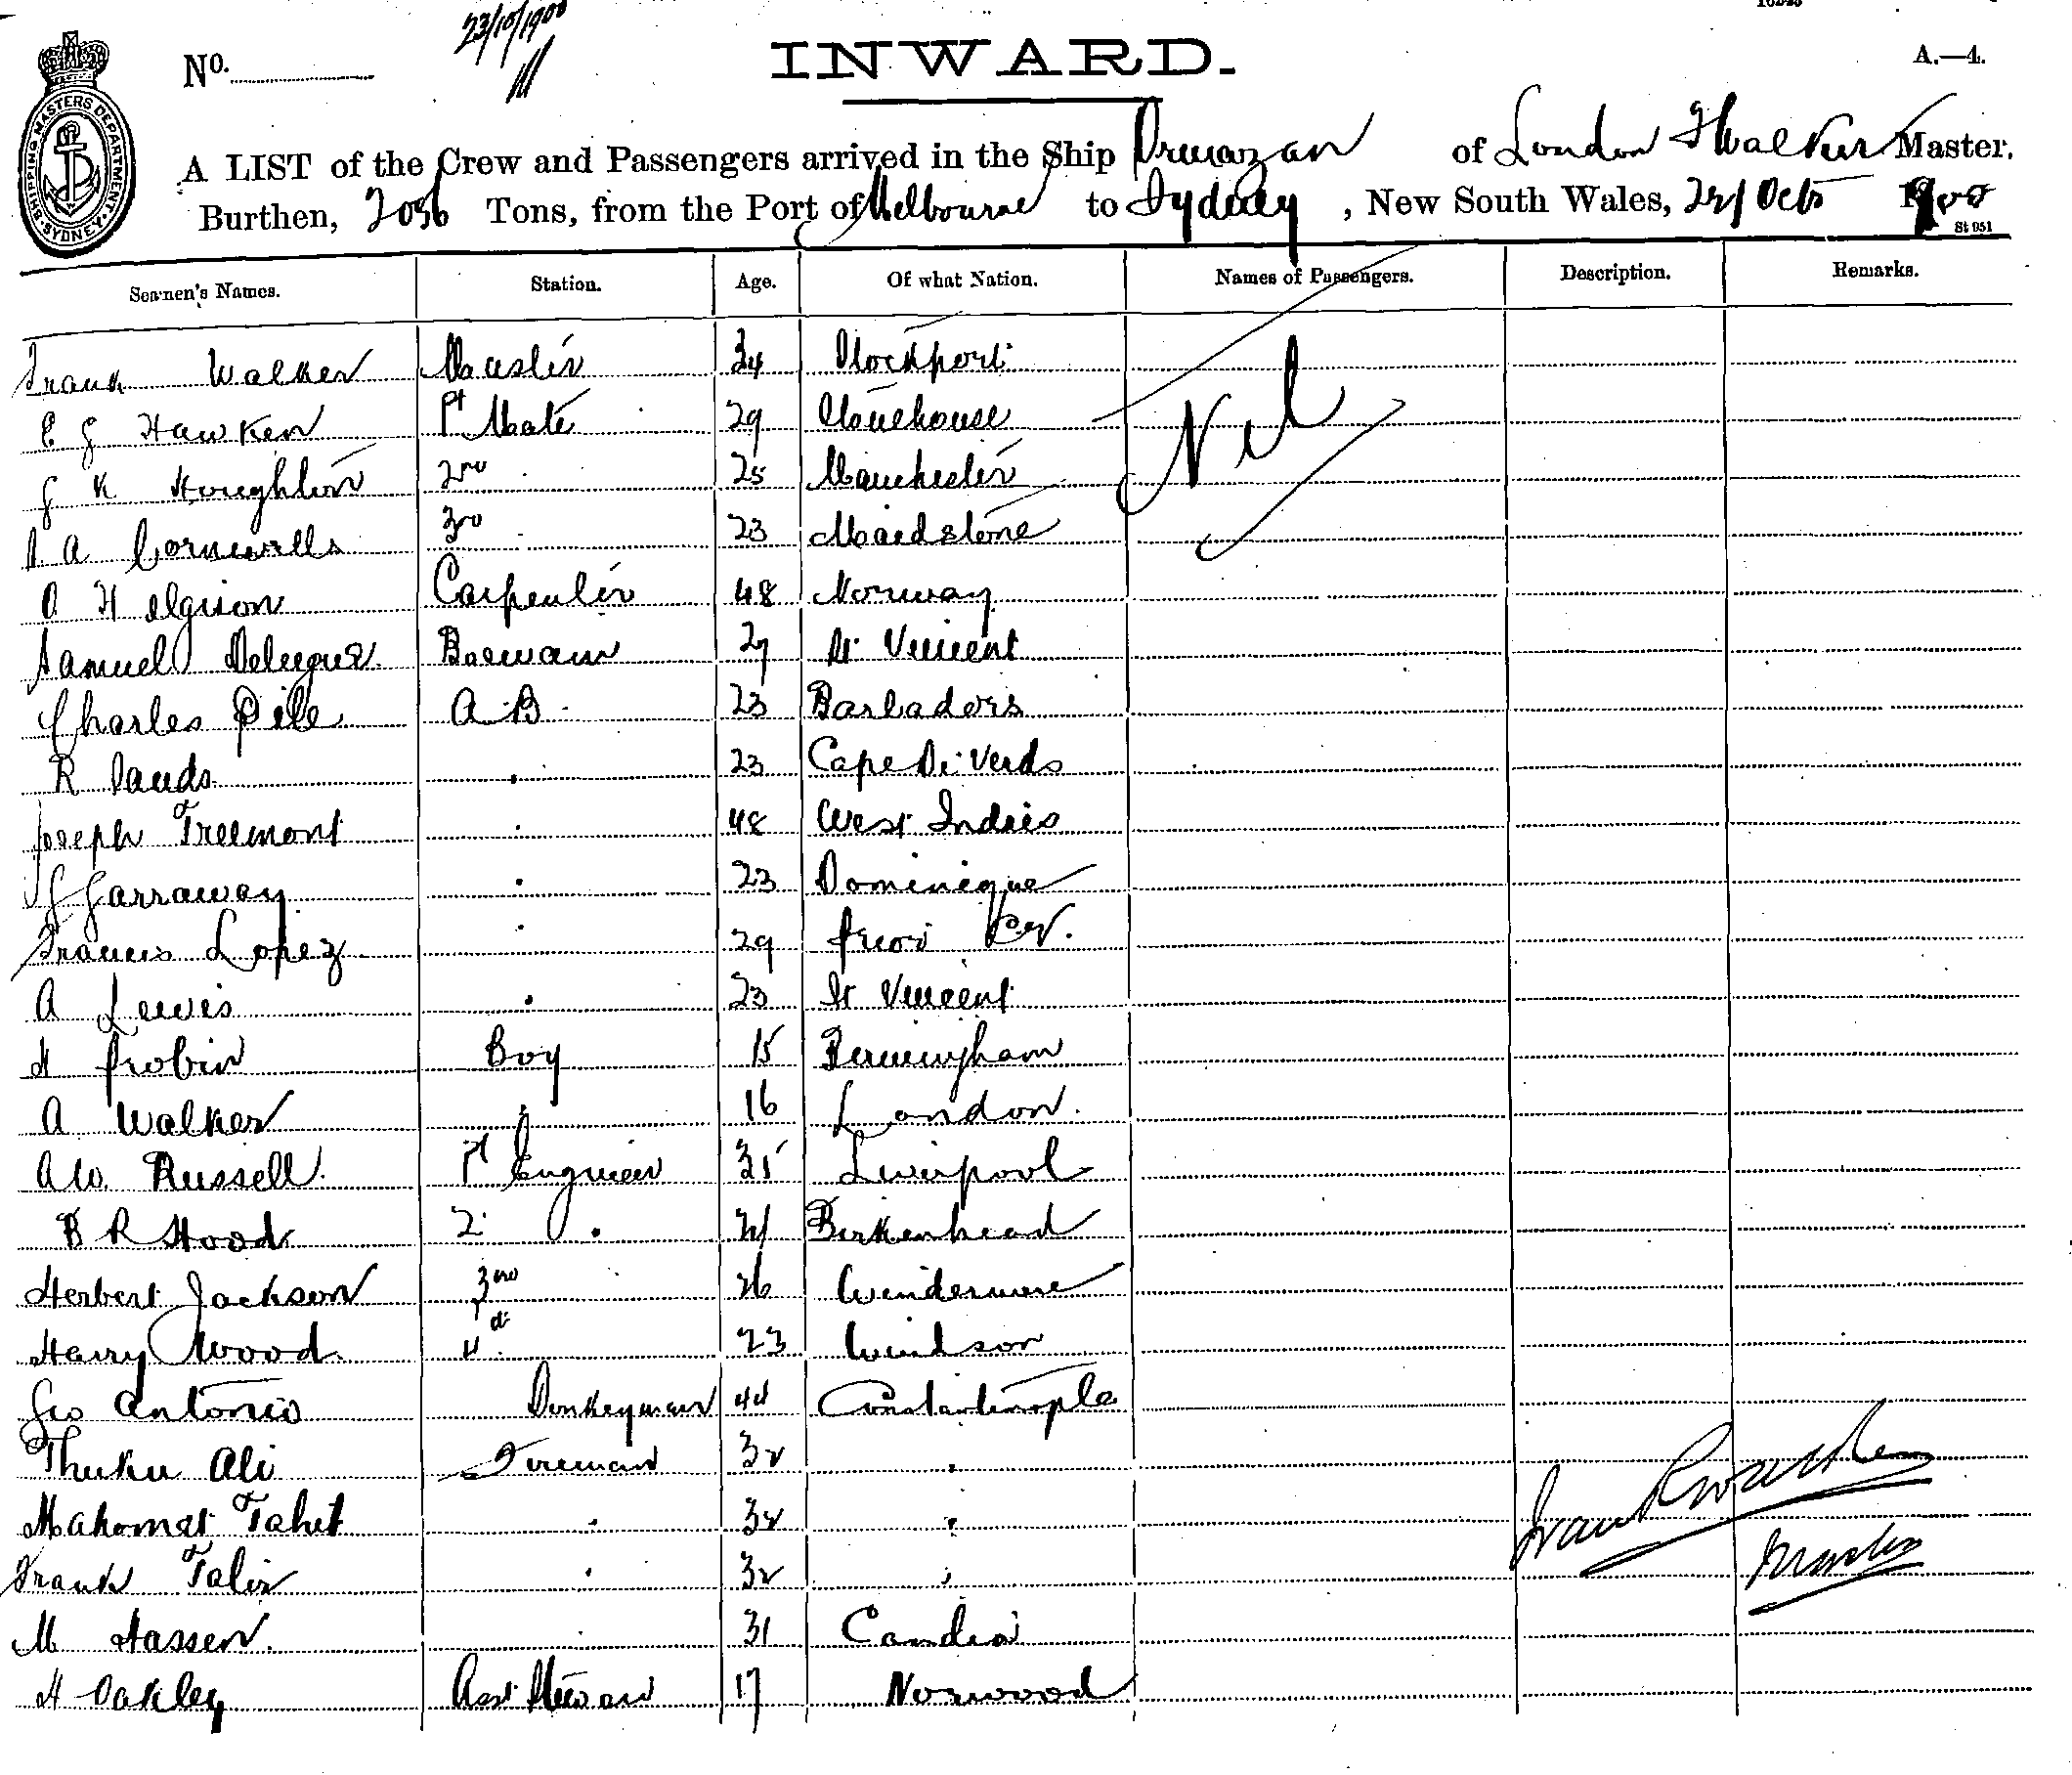 23/10/1900
No.
INWARD.
A.—4.
SHIPPING MASTERS DEPARTMENT SYDNEY
A LIST of the Crew and Passengers arrived in the Ship of London F Walker Master.
Burthen, 2056 Tons, from the Port of Melbourne to Sydney, New South Wales, Oct 1900
St 951
Seamen's Names. Station. Age. Of what Nation. Names of Passengers. Description. Remarks.
Frank Walker Master 34 Stockport
E G Hawken 1st Mate 29 Stonehouse
J K Houghton 2nd 25 Manchester
A Cornwells 3rd 23 Maidstone
A Helgison Carpenter 48 Norway
Samuel Boswain 27 St Vincent
Charles Pile A.B. 23 Barbadoes
R 23 Cape De Verds
Joseph Treemont 48 West Indies
J Garraway 23 Domineque
Francis Lopez 29
A Lewis 23 St Vincent
H Probin Boy 15 Birmingham
A Walker 16 London.
A W. Russell. 1st Engineer 35 Liverpool
B R Hood 2 Birkenhead
Herbert Jackson 3rd 26 Windermere
Harry Wood 4th 23 Windsor
Geo Antonio Donkeyman 44 Constantinople
Thuku Ali Fireman 32
Mahomet Tahit 32
Frank Talir 32
M Hassen. 31 Candia
H Oakley Asst Steward 17 Norwood
Nil
Frank Walker
Master